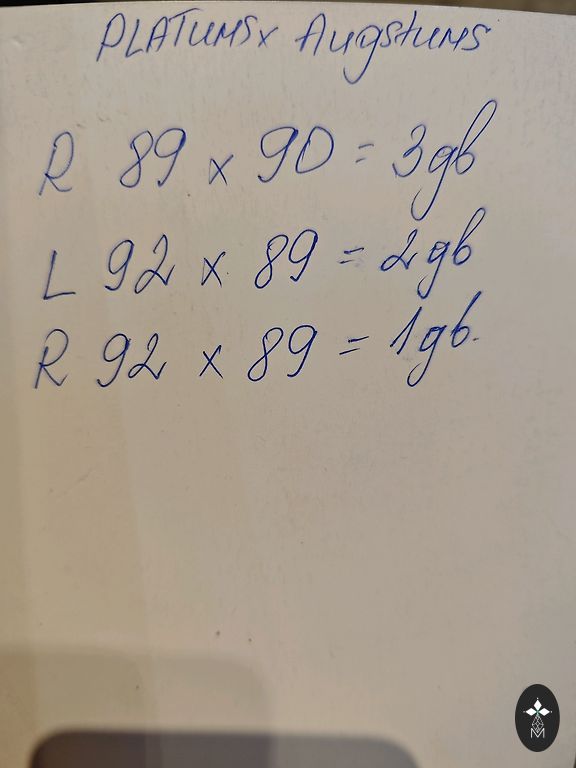 PLATUMS x Augstums
R 89 x 90 = 3gb
L 92 x 89 = 2gb
R 92 x 89 = 1gb.
M